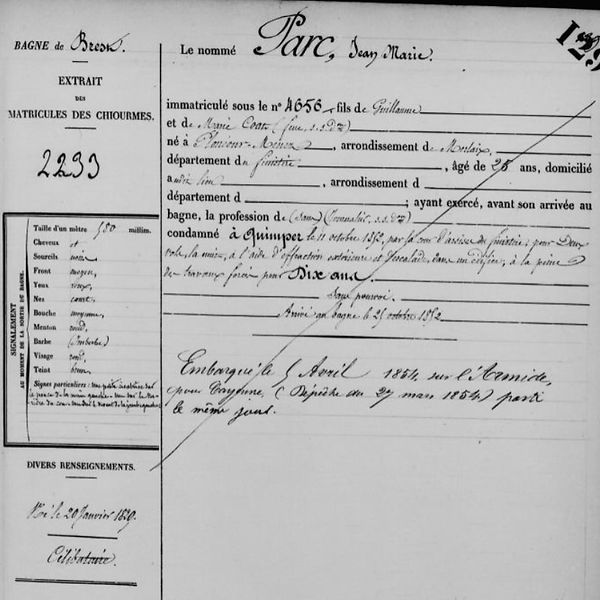 BAGNE de Brest.
EXTRAIT
DES
MATRICULES DES CHIOURMES.
2233
SIGNALEMENT
AU MOMENT DE LA SORTIE DU BAGNE.
Taille d'un mètre 580 millim.
Cheveux et
Sourcils noirs
Front moyen
Yeux roux
Nez court
Bouche moyenne
Menton rond
Barbe (Imberbe)
Visage rond
Teint brun
Signes particuliers : Une petite cicatrice sur
le pouce de la main gauche
DIVERS RENSEIGNEMENTS.
Né le 20 Janvier 1829.
Célibataire.
129
Le nommé Parc, Jean Marie.
immatriculé sous le nº 4656, fils de Guillaume
et de Marie Coat (feue, s.s.dre)
né à Plouneour-Menez, arrondissement de Morlaix,
département du finistère, âgé de 25 ans, domicilié
audit lieu, arrondissement d
département d ; ayant exercé, avant son arrivée au
bagne, la profession de (sans) (Journalier, s.s.dre)
condamné à Quimper le 11 octobre 1852, par la cour d'assises du finistère; pour Deux
vols, la nuit, à l'aide d'effraction extérieure et d'escalade, dans un édifice, à la peine
de travaux forcés pour Dix ans.
Sans pourvoi.
Arrivé au bagne le 25 octobre 1852
Embarqué le 5 Avril 1854 sur l'Armide,
pour Cayenne, (Dépêche du 27 mars 1854) parti
le même jour.